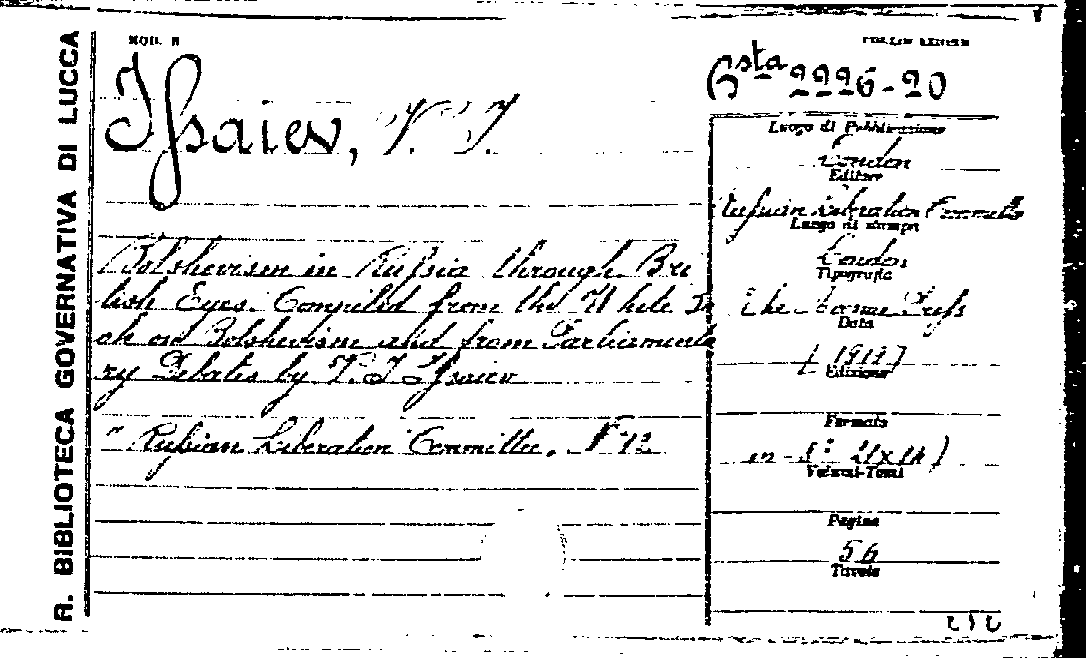 R. BIBLIOTECA GOVERNATIVA DI LUCCA
MOD. B
Issaiev, V. I.
Bolshevism in Russia through Bri
tish Eyes. Compiled from the White
on Bolshevism and from Parliamenta
ry Debates by V. I. Issaiev
" Russian Liberation Committee. N 12
Bsta 2226-20
Luogo di Pubblicazione
London
Editore
Russian Liberation Committee
Luogo di stampa
London
Tipografia
The Press
Data
[1919]
Edizione
Formato
in-8° 21x14)
Volumi-Tomi
Pagine
56
Tavole